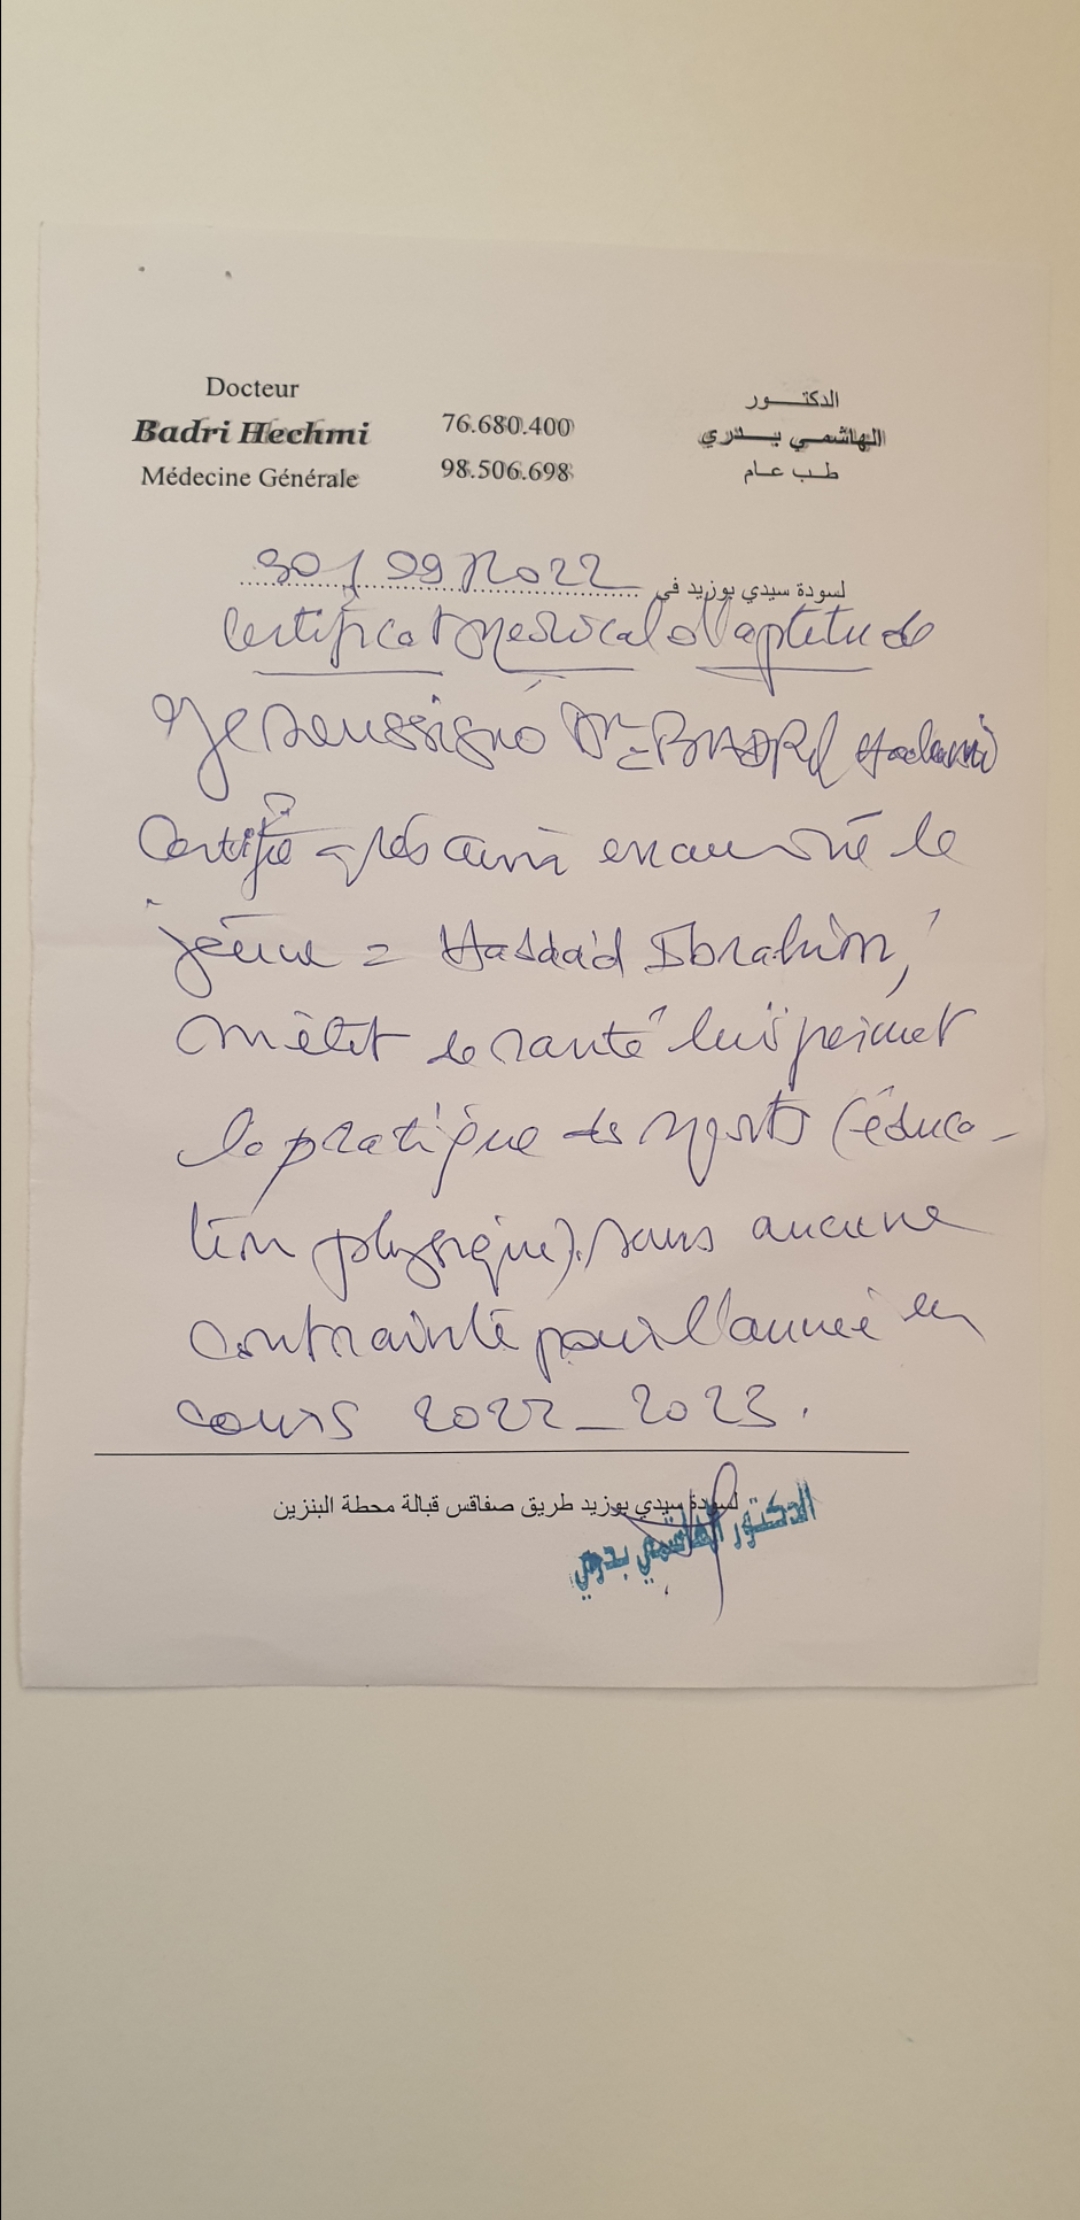 Docteur
Badri Hechmi
Médecine Générale
76.680.400
98.506.698
الدكتـــــور
الهاشمـي بـــدري
طـب عـام
لسودة سيدي بوزيد في 30/09/2022
Certificat médical d'aptitude
Je soussigné Dr: BADRI Hechmi
Certifie après avoir examiné le
jeune = Haddad Ibrahim,
état de santé lui permet
la pratique des sports (éduca-
tion physique). sans aucune
contrainte pour l'année en
cours 2022_2023.
لسودة سيدي بوزيد طريق صفاقس قبالة محطة البنزين
الدكتور الهاشمي بدري